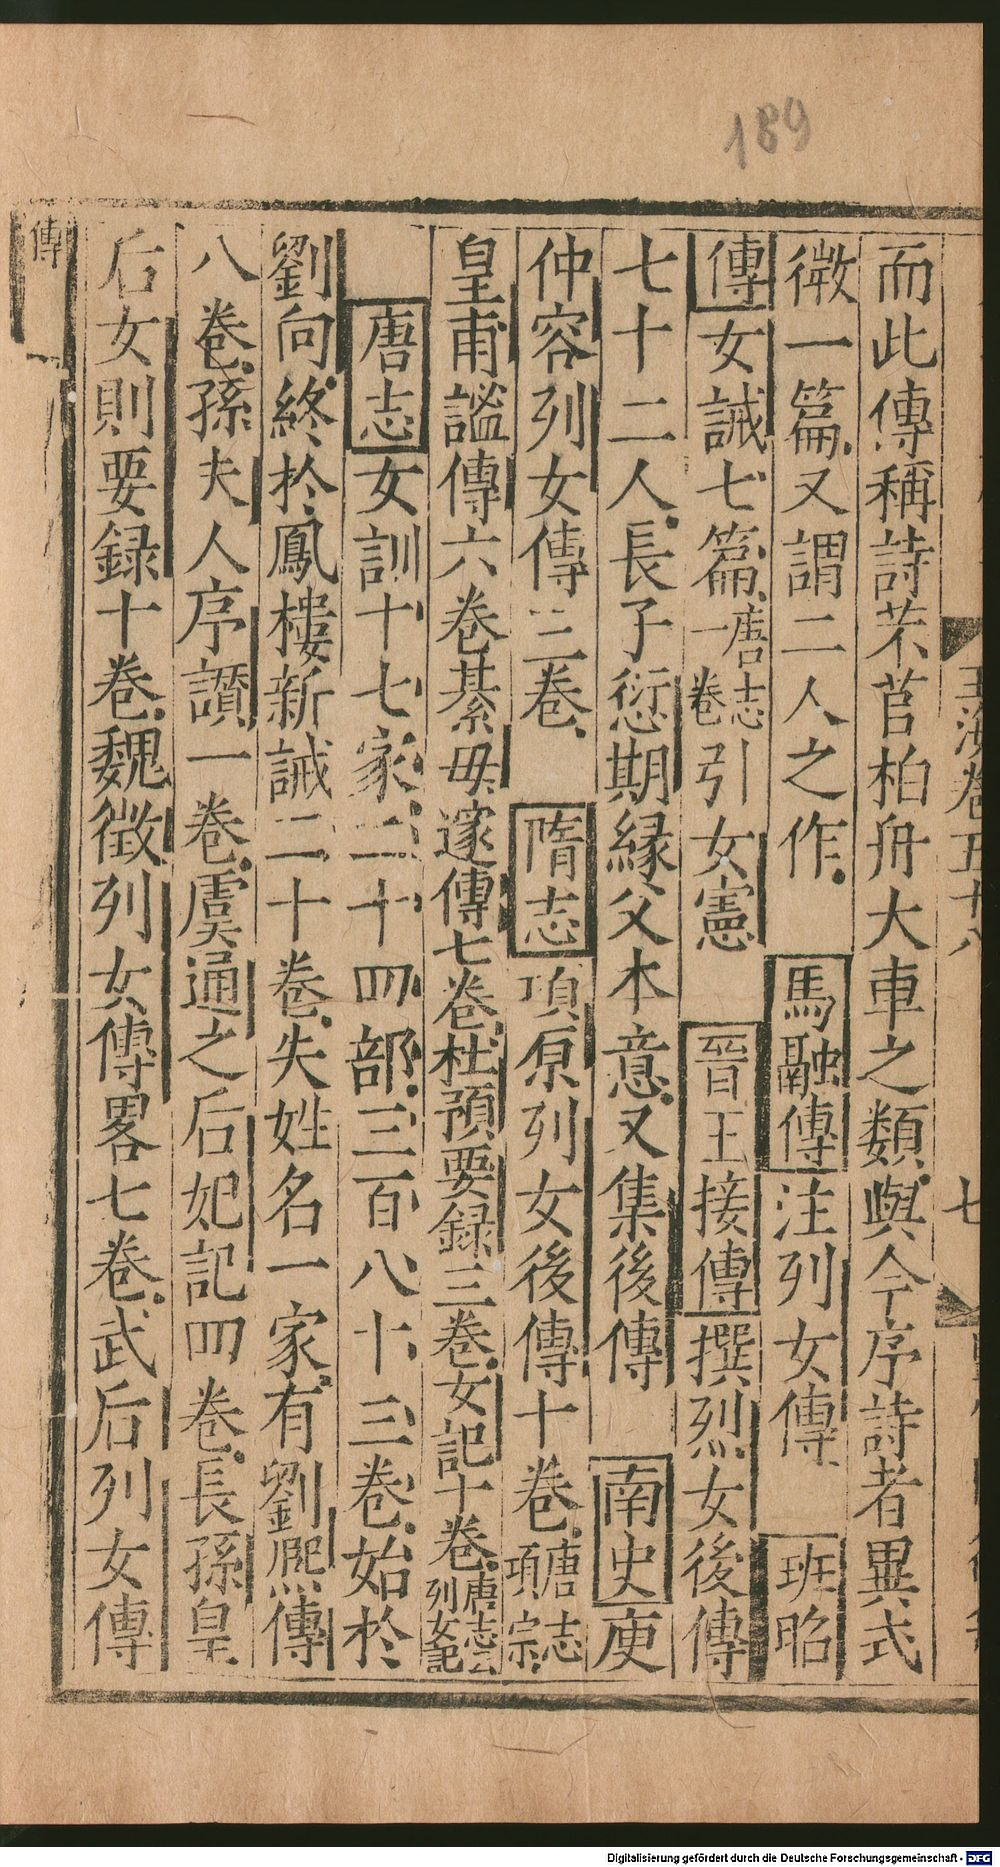 189
而此傳稱詩芣苢柏舟大車之類與今序詩者異式
微一篇又謂二人之作馬融傳注列女傳班昭
傳女誡七篇唐志一卷引女憲晉王接傳撰烈女後傳
七十二人長子愆期緣父本意又集後傳南史庾
仲容列女傳三卷隋志項原列女後傳十卷唐志項宗
皇甫謐傳六卷綦毋邃傳七卷杜預要録三卷女記十卷唐志云列女記
唐志女訓十七家二十四部三百八十三卷始於
劉向終於鳳樓新誡二十卷失姓名一家有劉熈傳
八卷孫夫人序讃一卷虞通之后妃記四卷長孫皇
后女則要録十卷魏徵列女傳畧七卷武后列女傳
傳
玉海卷五十八
七
Digitalisierung gefördert durch die Deutsche Forschungsgemeinschaft - DFG